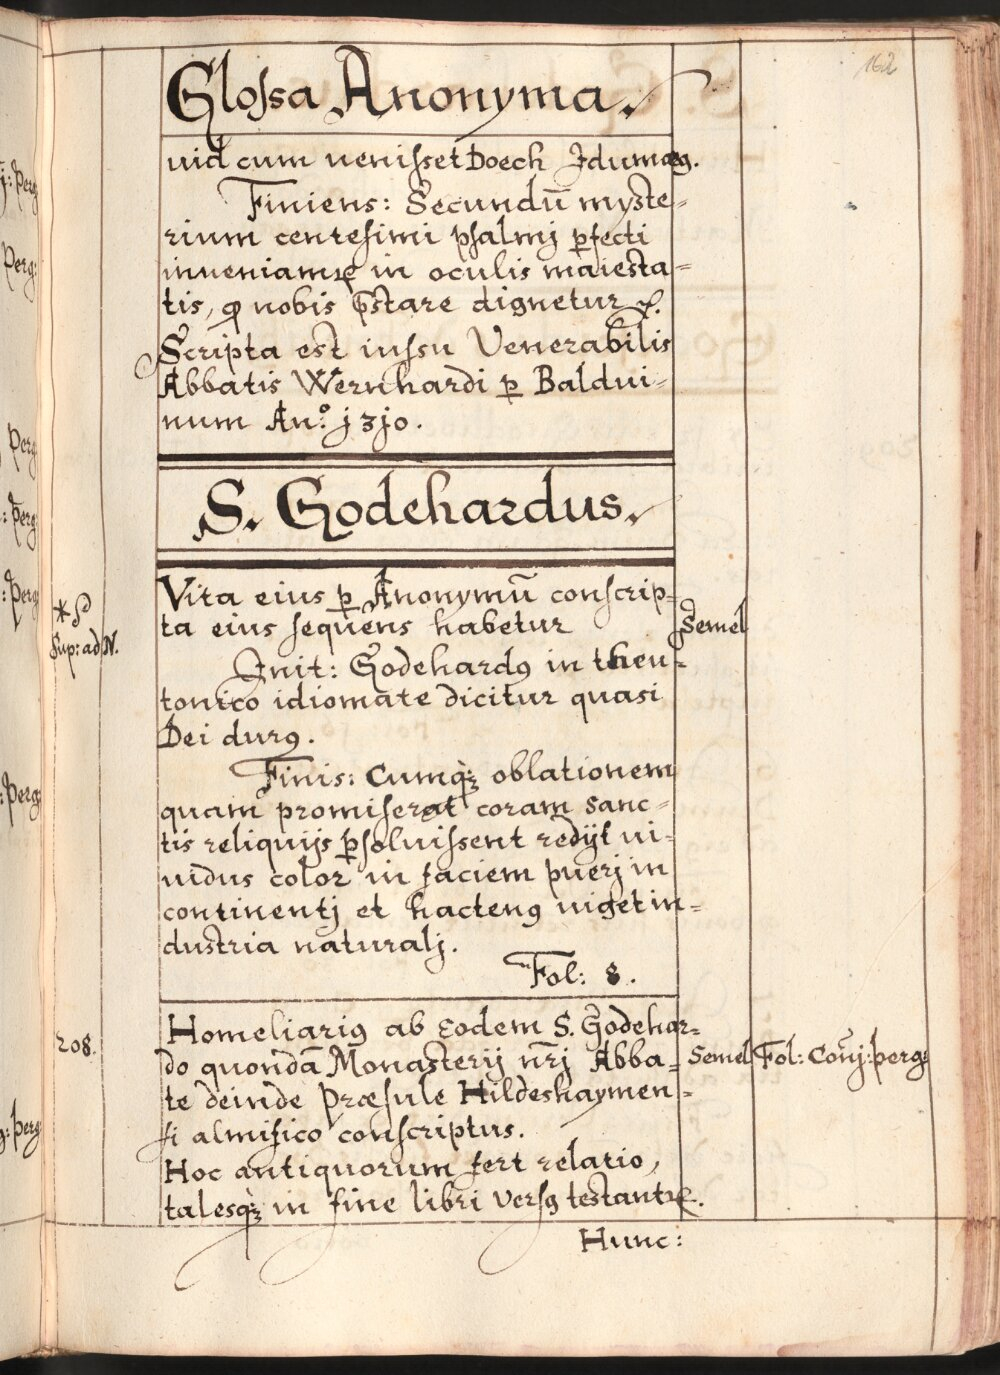 162
Glossa Anonyma.
uid cum uenisset Doech Jdumæꝯ.
Finiens: Secundū myste-
rium centesimi psalmj ꝑfecti
inueniamꝛ in oculis maiesta-
tis, ꝙ nobis p̄stare dignetur ꝛc.
Scripta est iussu Venerabilis
Abbatis Wernhardi ꝑ Baldui-
num An:º j3jo.
S. Godehardus.
Vita eius ꝑ Anonymū conscrip-
ta eius sequens habetur
Semel
*
Sup: ad N.
Init: Godehardꝯ in theu-
tonico idiomate dicitur quasi
Dei durꝯ.
Finis: Cumqꝫ oblationem
quam promiserat coram sanc-
tis reliquijs ꝑsoluissent redijt ui-
uidus color in faciem puerj in
continentj et hactenꝯ uiget in-
dustria naturalj.
Fol: 8.
208.
Homeliariꝯ ab eodem S. Godehar-
do quondā Monasterij nr̄j Abba-
Semel
Fol: Cōuj: perg:
te deinde Præsule Hildeshaymen-
si almifico conscriptus.
Hoc antiquorum fert relatio,
talesqꝫ in fine libri versꝯ testantꝛ.
Hunc:
perg:
Perg:
Perg:
: perg:
: perg
: perg:
: perg: